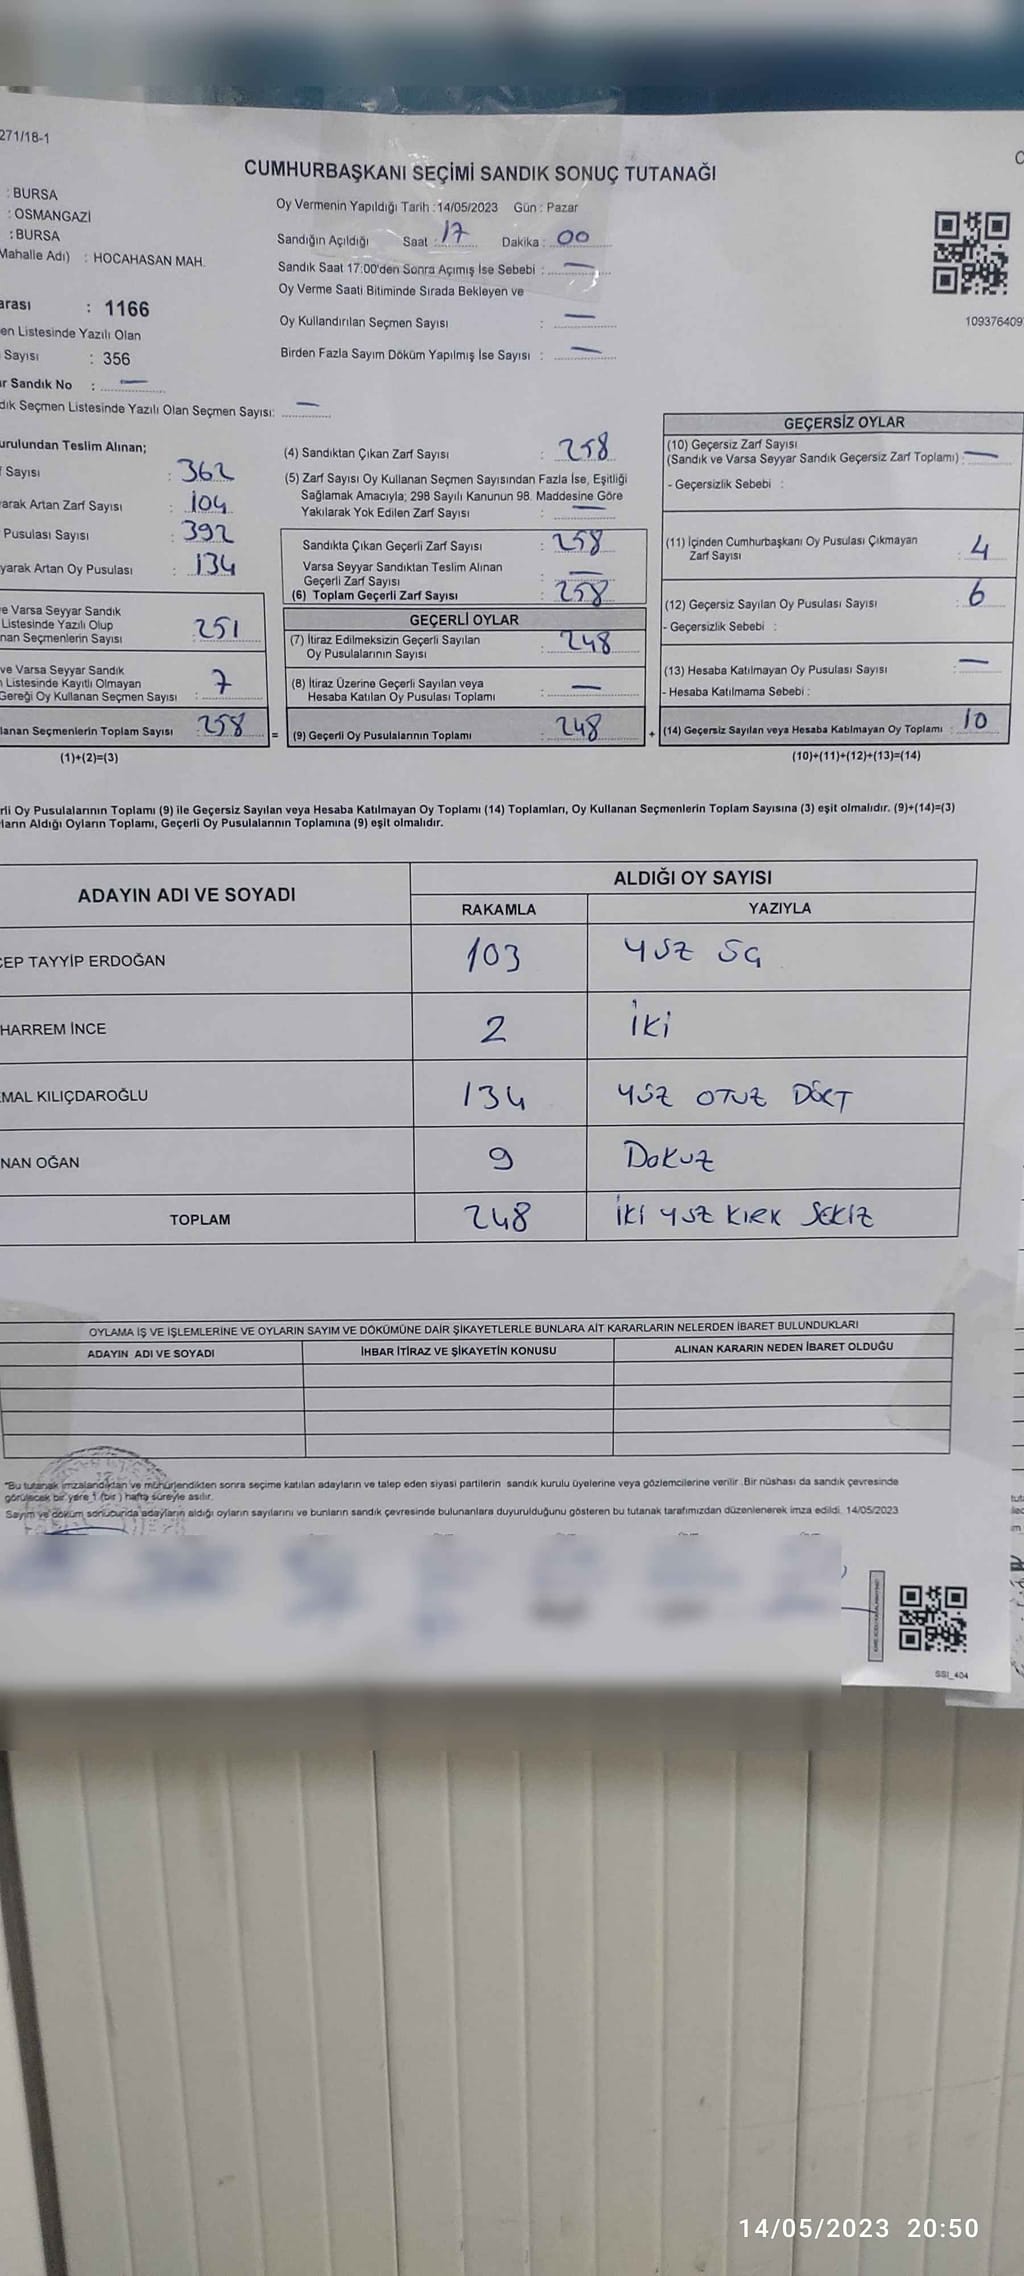 271/18-1
CUMHURBAŞKANI SEÇİMİ SANDIK SONUÇ TUTANAĞI
: BURSA
: OSMANGAZİ
: BURSA
Mahalle Adı) : HOCAHASAN MAH.
Oy Vermenin Yapıldığı Tarih :14/05/2023 Gün : Pazar
Sandığın Açıldığı Saat : 17 Dakika : 00
Sandık Saat 17:00'den Sonra Açımış İse Sebebi : —
Oy Verme Saati Bitiminde Sırada Bekleyen ve
Oy Kullandırılan Seçmen Sayısı : —
Birden Fazla Sayım Döküm Yapılmış İse Sayısı : —
109376409
arası : 1166
en Listesinde Yazılı Olan
Sayısı : 356
ır Sandık No : —
dık Seçmen Listesinde Yazılı Olan Seçmen Sayısı: —
urulundan Teslim Alınan;
f Sayısı : 362
arak Artan Zarf Sayısı : 104
Pusulası Sayısı : 392
yarak Artan Oy Pusulası : 134
e Varsa Seyyar Sandık
Listesinde Yazılı Olup
nan Seçmenlerin Sayısı 251
ve Varsa Seyyar Sandık
n Listesinde Kayıtlı Olmayan
Gereği Oy Kullanan Seçmen Sayısı : 7
lanan Seçmenlerin Toplam Sayısı 258
(1)+(2)=(3)
(4) Sandıktan Çıkan Zarf Sayısı : 258
(5) Zarf Sayısı Oy Kullanan Seçmen Sayısından Fazla İse, Eşitliği
Sağlamak Amacıyla; 298 Sayılı Kanunun 98. Maddesine Göre
Yakılarak Yok Edilen Zarf Sayısı : —
Sandıkta Çıkan Geçerli Zarf Sayısı : 258
Varsa Seyyar Sandıktan Teslim Alınan
Geçerli Zarf Sayısı : —
(6) Toplam Geçerli Zarf Sayısı : 258
GEÇERLİ OYLAR
(7) İtiraz Edilmeksizin Geçerli Sayılan
Oy Pusulalarının Sayısı : 248
(8) İtiraz Üzerine Geçerli Sayılan veya
Hesaba Katılan Oy Pusulası Toplamı : —
= (9) Geçerli Oy Pusulalarının Toplamı : 248
GEÇERSİZ OYLAR
(10) Geçersiz Zarf Sayısı
(Sandık ve Varsa Seyyar Sandık Geçersiz Zarf Toplamı) : —
- Geçersizlik Sebebi :
(11) İçinden Cumhurbaşkanı Oy Pusulası Çıkmayan
Zarf Sayısı : 4
(12) Geçersiz Sayılan Oy Pusulası Sayısı : 6
- Geçersizlik Sebebi :
(13) Hesaba Katılmayan Oy Pusulası Sayısı : —
- Hesaba Katılmama Sebebi :
+ (14) Geçersiz Sayılan veya Hesaba Katılmayan Oy Toplamı : 10
(10)+(11)+(12)+(13)=(14)
rli Oy Pusulalarının Toplamı (9) ile Geçersiz Sayılan veya Hesaba Katılmayan Oy Toplamı (14) Toplamları, Oy Kullanan Seçmenlerin Toplam Sayısına (3) eşit olmalıdır. (9)+(14)=(3)
ların Aldığı Oyların Toplamı, Geçerli Oy Pusulalarının Toplamına (9) eşit olmalıdır.
ADAYIN ADI VE SOYADI ALDIĞI OY SAYISI
RAKAMLA YAZIYLA
CEP TAYYİP ERDOĞAN 103 YÜZ
HARREM İNCE 2 İKİ
EMAL KILIÇDAROĞLU 134 YÜZ OTUZ DÖRT
NAN OĞAN 9 DOKUZ
TOPLAM 248 İKİ YÜZ KIRK SEKİZ
OYLAMA İŞ VE İŞLEMLERİNE VE OYLARIN SAYIM VE DÖKÜMÜNE DAİR ŞİKAYETLERLE BUNLARA AİT KARARLARIN NELERDEN İBARET BULUNDUKLARI
ADAYIN ADI VE SOYADI İHBAR İTİRAZ VE ŞİKAYETİN KONUSU ALINAN KARARIN NEDEN İBARET OLDUĞU
*Bu tutanak imzalandıktan ve mühürlendikten sonra seçime katılan adayların ve talep eden siyasi partilerin sandık kurulu üyelerine veya gözlemcilerine verilir .Bir nüshası da sandık çevresinde
görülecek bir yere 1 (bir ) hafta süreyle asılır.
Sayım ve döküm sonucunda adayların aldığı oyların sayılarını ve bunların sandık çevresinde bulunanlara duyurulduğunu gösteren bu tutanak tarafımızdan düzenlenerek imza edildi. 14/05/2023
SSI_404
14/05/2023 20:50